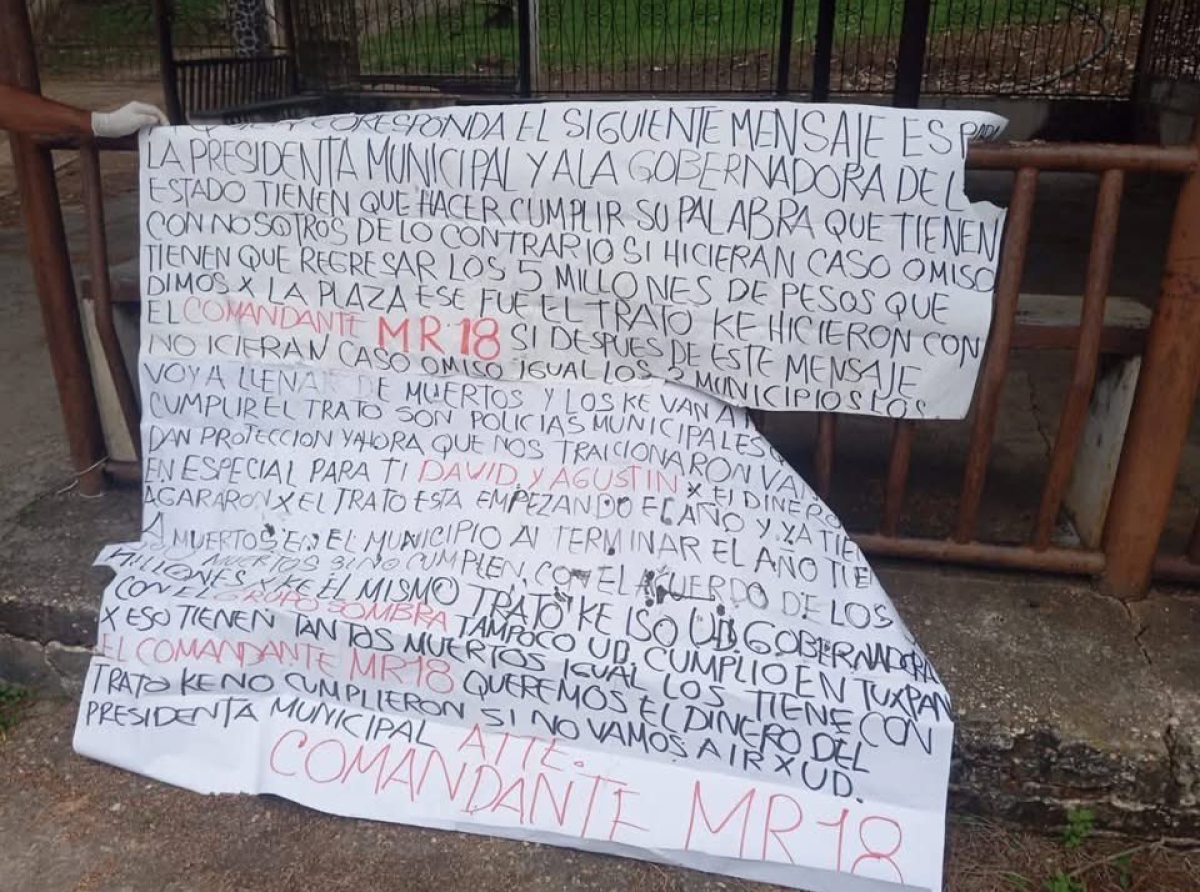 CORESPONDA EL SIGUIENTE MENSAJE ES PARA
LA PRESIDENTA MUNICIPAL Y A LA GOBERNADORA DEL
ESTADO TIENEN QUE HACER CUMPLIR SU PALABRA QUE TIENEN
CON NOSOTROS DE LO CONTRARIO SI HICIERAN CASO OMISO
TIENEN QUE REGRESAR LOS 5 MILLONES DE PESOS QUE
DIMOS X LA PLAZA ESE FUE EL TRATO KE HICIERON CON
EL COMANDANTE MR 18 SI DESPUES DE ESTE MENSAJE
NO ICIERAN CASO OMISO IGUAL LOS 2 MUNICIPIOS LOS
VOY A LLENAR DE MUERTOS Y LOS KE VAN A
CUMPLIR EL TRATO SON POLICIAS MUNICIPALES
DAN PROTECCION Y AHORA QUE NOS TRAICIONARON VAN
EN ESPECIAL PARA TI DAVID Y AGUSTIN X EL DINERO
AGARARON X EL TRATO ESTA EMPEZANDO EL AÑO Y YA TIE
MUERTOS EN EL MUNICIPIO AL TERMINAR EL AÑO TIE
MUERTOS SI NO CUMPLEN CON EL ACUERDO DE LOS
MILLONES X KE EL MISMO TRATO KE ISO UD. GOBERNADORA
CON EL GRUPO SOMBRA TAMPOCO UD. CUMPLIO EN TUXPAN
X ESO TIENEN TANTOS MUERTOS IGUAL LOS TIENE CON
EL COMANDANTE MR18 QUEREMOS EL DINERO DEL
TRATO KE NO CUMPLIERON SI NO VAMOS A IR X UD.
PRESIDENTA MUNICIPAL ATTE.
COMANDANTE MR18